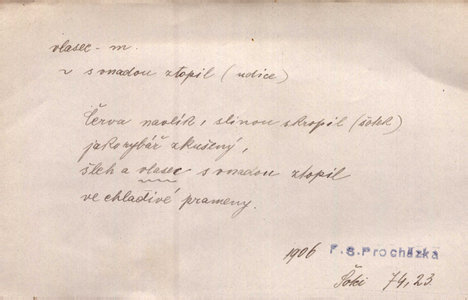 vlasec - m.
~ s vnadou ztopil (udice)
Červa navlík, slinou skropil (šotek)
jako rybář zkušený,
šleh a vlasec s vnadou ztopil
ve chladivé prameny.
1906 F. S. Procházka
74,23.